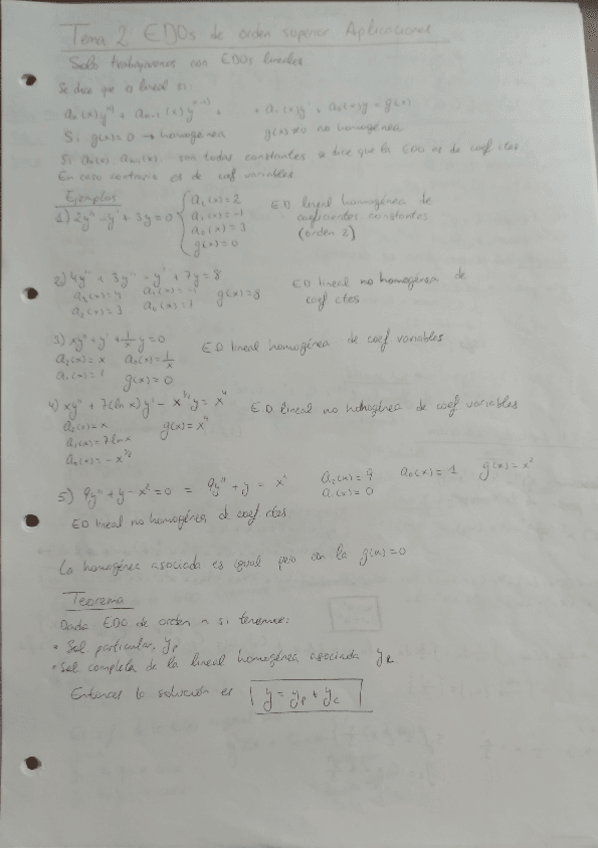 Tema 2 EDOs de orden superior. Aplicaciones
Solo trabajaremos con EDOs lineales
Se dice que es lineal si:
+ a₁(x)y' + a₀(x)y = g(x)
Si g(x)=0 → homogénea g(x)≠0 no homogénea
son todas constantes se dice que la EDO es de coef ctes
En caso contrario es de coef variables
Ejemplos
1) 2y'' - y' + 3y = 0 { a₂(x)=2 ED lineal homogénea de
a₁(x)=-1 coeficientes constantes
a₀(x)=3 (orden 2)
g(x)=0
+ 7y = 8 ED lineal no homogénea de
a₂(x)=3 g(x)=8 coef ctes
3) xy'' + y' + 1/x y = 0 ED lineal homogénea de coef variables
a₂(x)=x a₀(x)=1/x
a₁(x)=1 g(x)=0
4) xy'' + 7(ln x)y' - x^1/2 y = x⁴ E.D. lineal no homogénea de coef variables
a₂(x)=x g(x)=x⁴
a₁(x)=7lnx
a₀(x)=-x^1/2
5) 9y'' + y - x² = 0 = 9y'' + y = x² a₂(x)=9 a₀(x)=1 g(x)=x²
a₁(x)=0
ED lineal no homogénea de coef ctes
La homogénea asociada es igual pero con la g(x)=0
Teorema
Dada EDO de orden n si tenemos:
• Sol particular, yp
• Sol completa de la lineal homogénea asociada
Entonces la solución es y = yp + yc